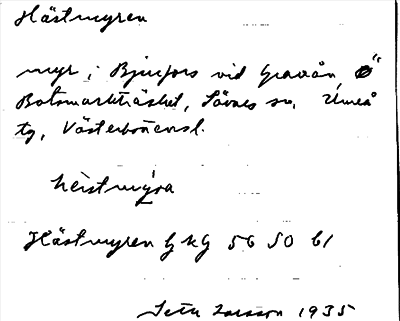 Hästmyren
myr i Bjurfors vid Gravån, Ö"
Botsmarksträsket, Sävars sn, Umeå
tg, Västerbottensl.
hèistmýra
Hästmyren G kg 56 SO b1
Seth Larsson 1935